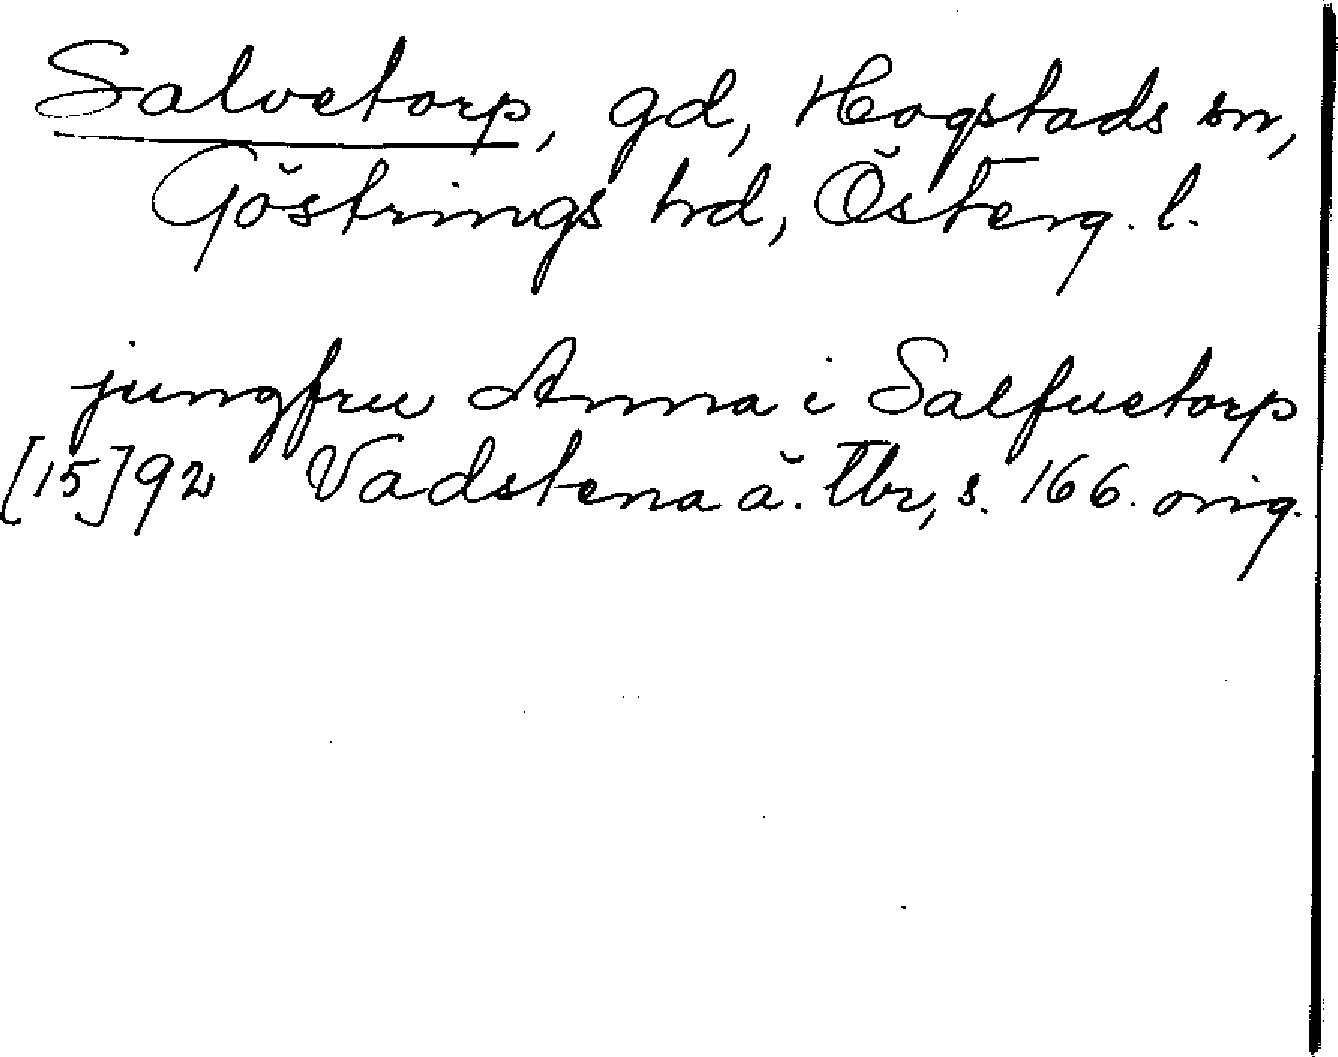 Salvetorp, gd, Hogstads sn,
Göstrings hd, Österg. l.
jungfru Anna i Salfuetorp
[15]92 Vadstena ä. Tbr, s. 166. orig.